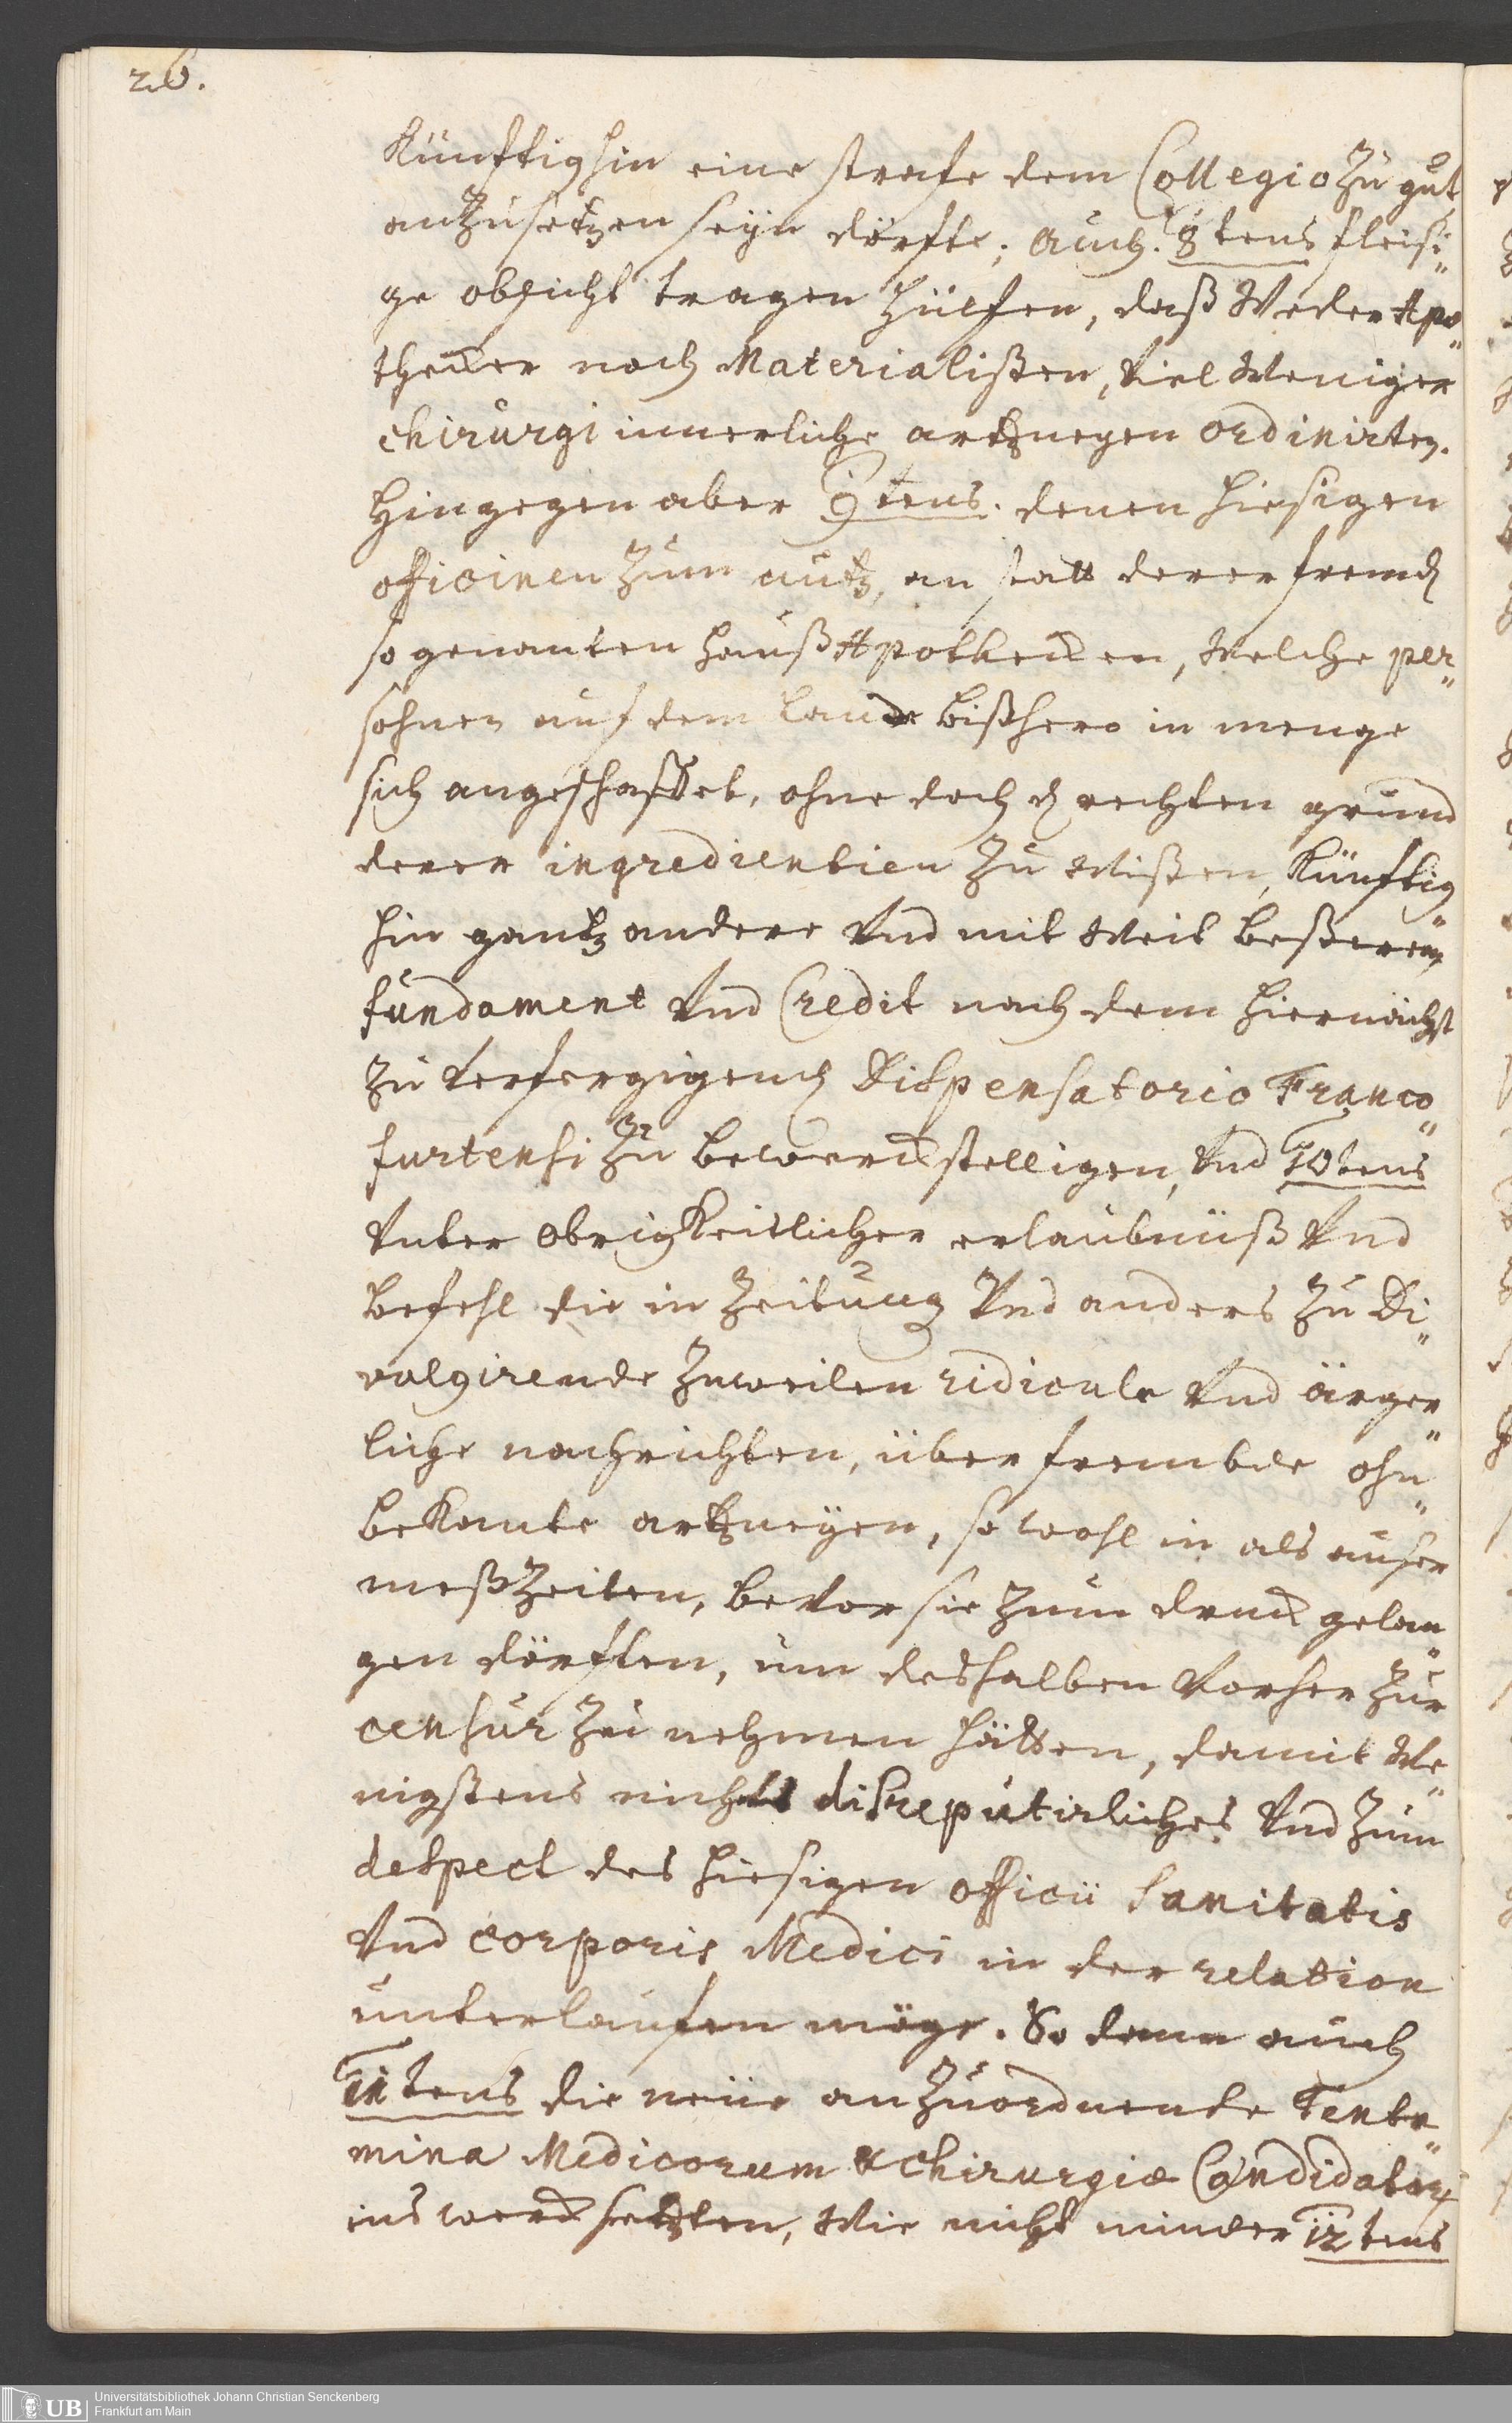 26.
Künfftighin eine straffe dem Collegio Zu gut
anZusetzen seÿn dörffte; auch. 8tens fleißi„
ge obsicht tragen hülffen, daß Weder Apo„
thecker noch Materialisten, Viel Weniger
chirurgi innerliche artzneyen ordinirten.
Hingegen aber 9tens. denen hiesigen
officinen Zum nutz, an statt derer frembd
so genanten Hauß Apothecken, Welche per„
sohnen auf dem Lande bißhero in menge
sich angeschaffet, ohne doch d rechten grund
derer ingredientien Zu Wißen, Künfftig„
hin gantz andere Und mit Weit beßerem
fundament Und Credit nach dem hiernächst
Zu Verfergigend Dispensatorio Franco„
furtensi Zu bewerckstelligen, Und 10tens
Unter Obrigkeitlicher erlaubnüß Und
befehl die in Zeitung Und anders Zu Di„
vulgirende Zuweilen ridicule Und ärger„
liche nachrichten, über frembde ohn„
bekante artzneÿen, so wohl in als auser
meßZeiten, beVor sie Zum druck gelan„
gen dörfften, um deshalben Vorher Zur
censur Zu nehmen hätten, damit We„
nigstens nichts disreputirliches Und Zum
despect des hiesigen officii Sanitatis
Und corporis Medici in der relation
unterlauffen möge. So dann auch
11tens die neüe anZuordnende Tenta„
mina Medicorum & chirurgiæ Candidator
ins werck setzten, Wie nicht minder 12tens
UB
Universitätsbibliothek Johann Christian Senckenberg
Frankfurt am Main